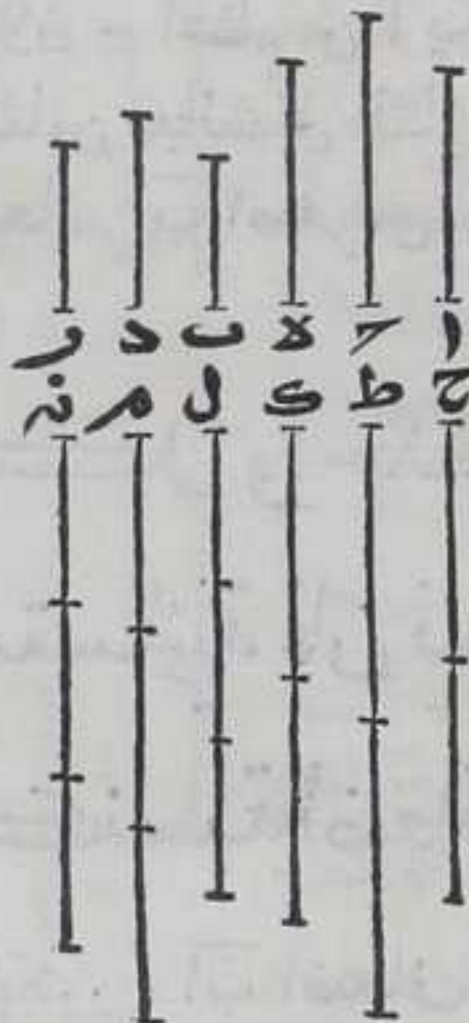 ا ج ه ب د ر
ح ط ك ل م ن